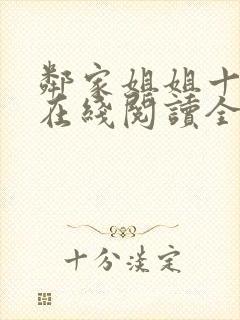 鄰家姐姐十
在綫閱讀全
十分淡定